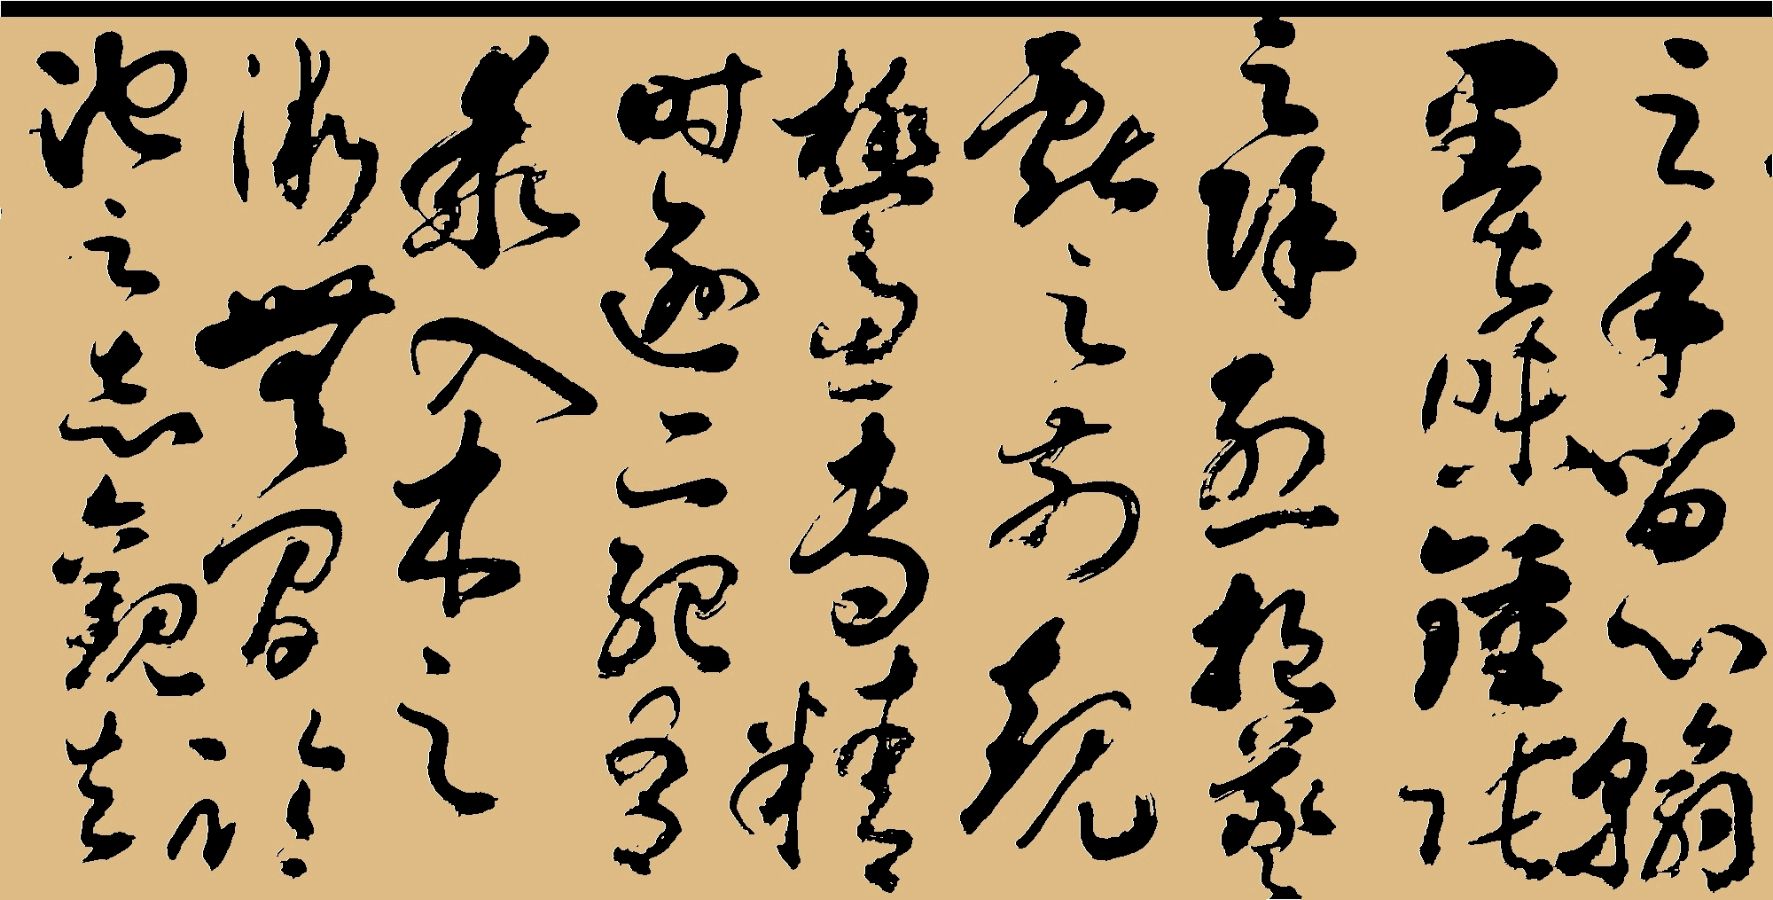 之年留心翰
墨味鍾張
之餘烈挹羲
獻之前規
極慮專精
時逾二紀有
乖入木之
術無間臨
池之志觀夫